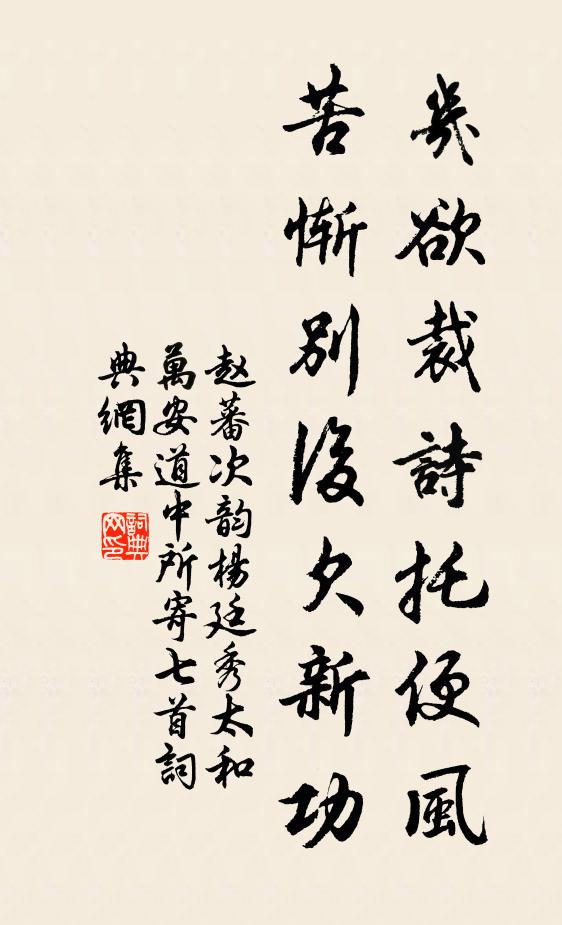 幾欲裁詩托便風
苦慚別後欠新功
赵蕃次韵楊廷秀太和
萬安道中所寄七首詞
典網集
詞典
网印